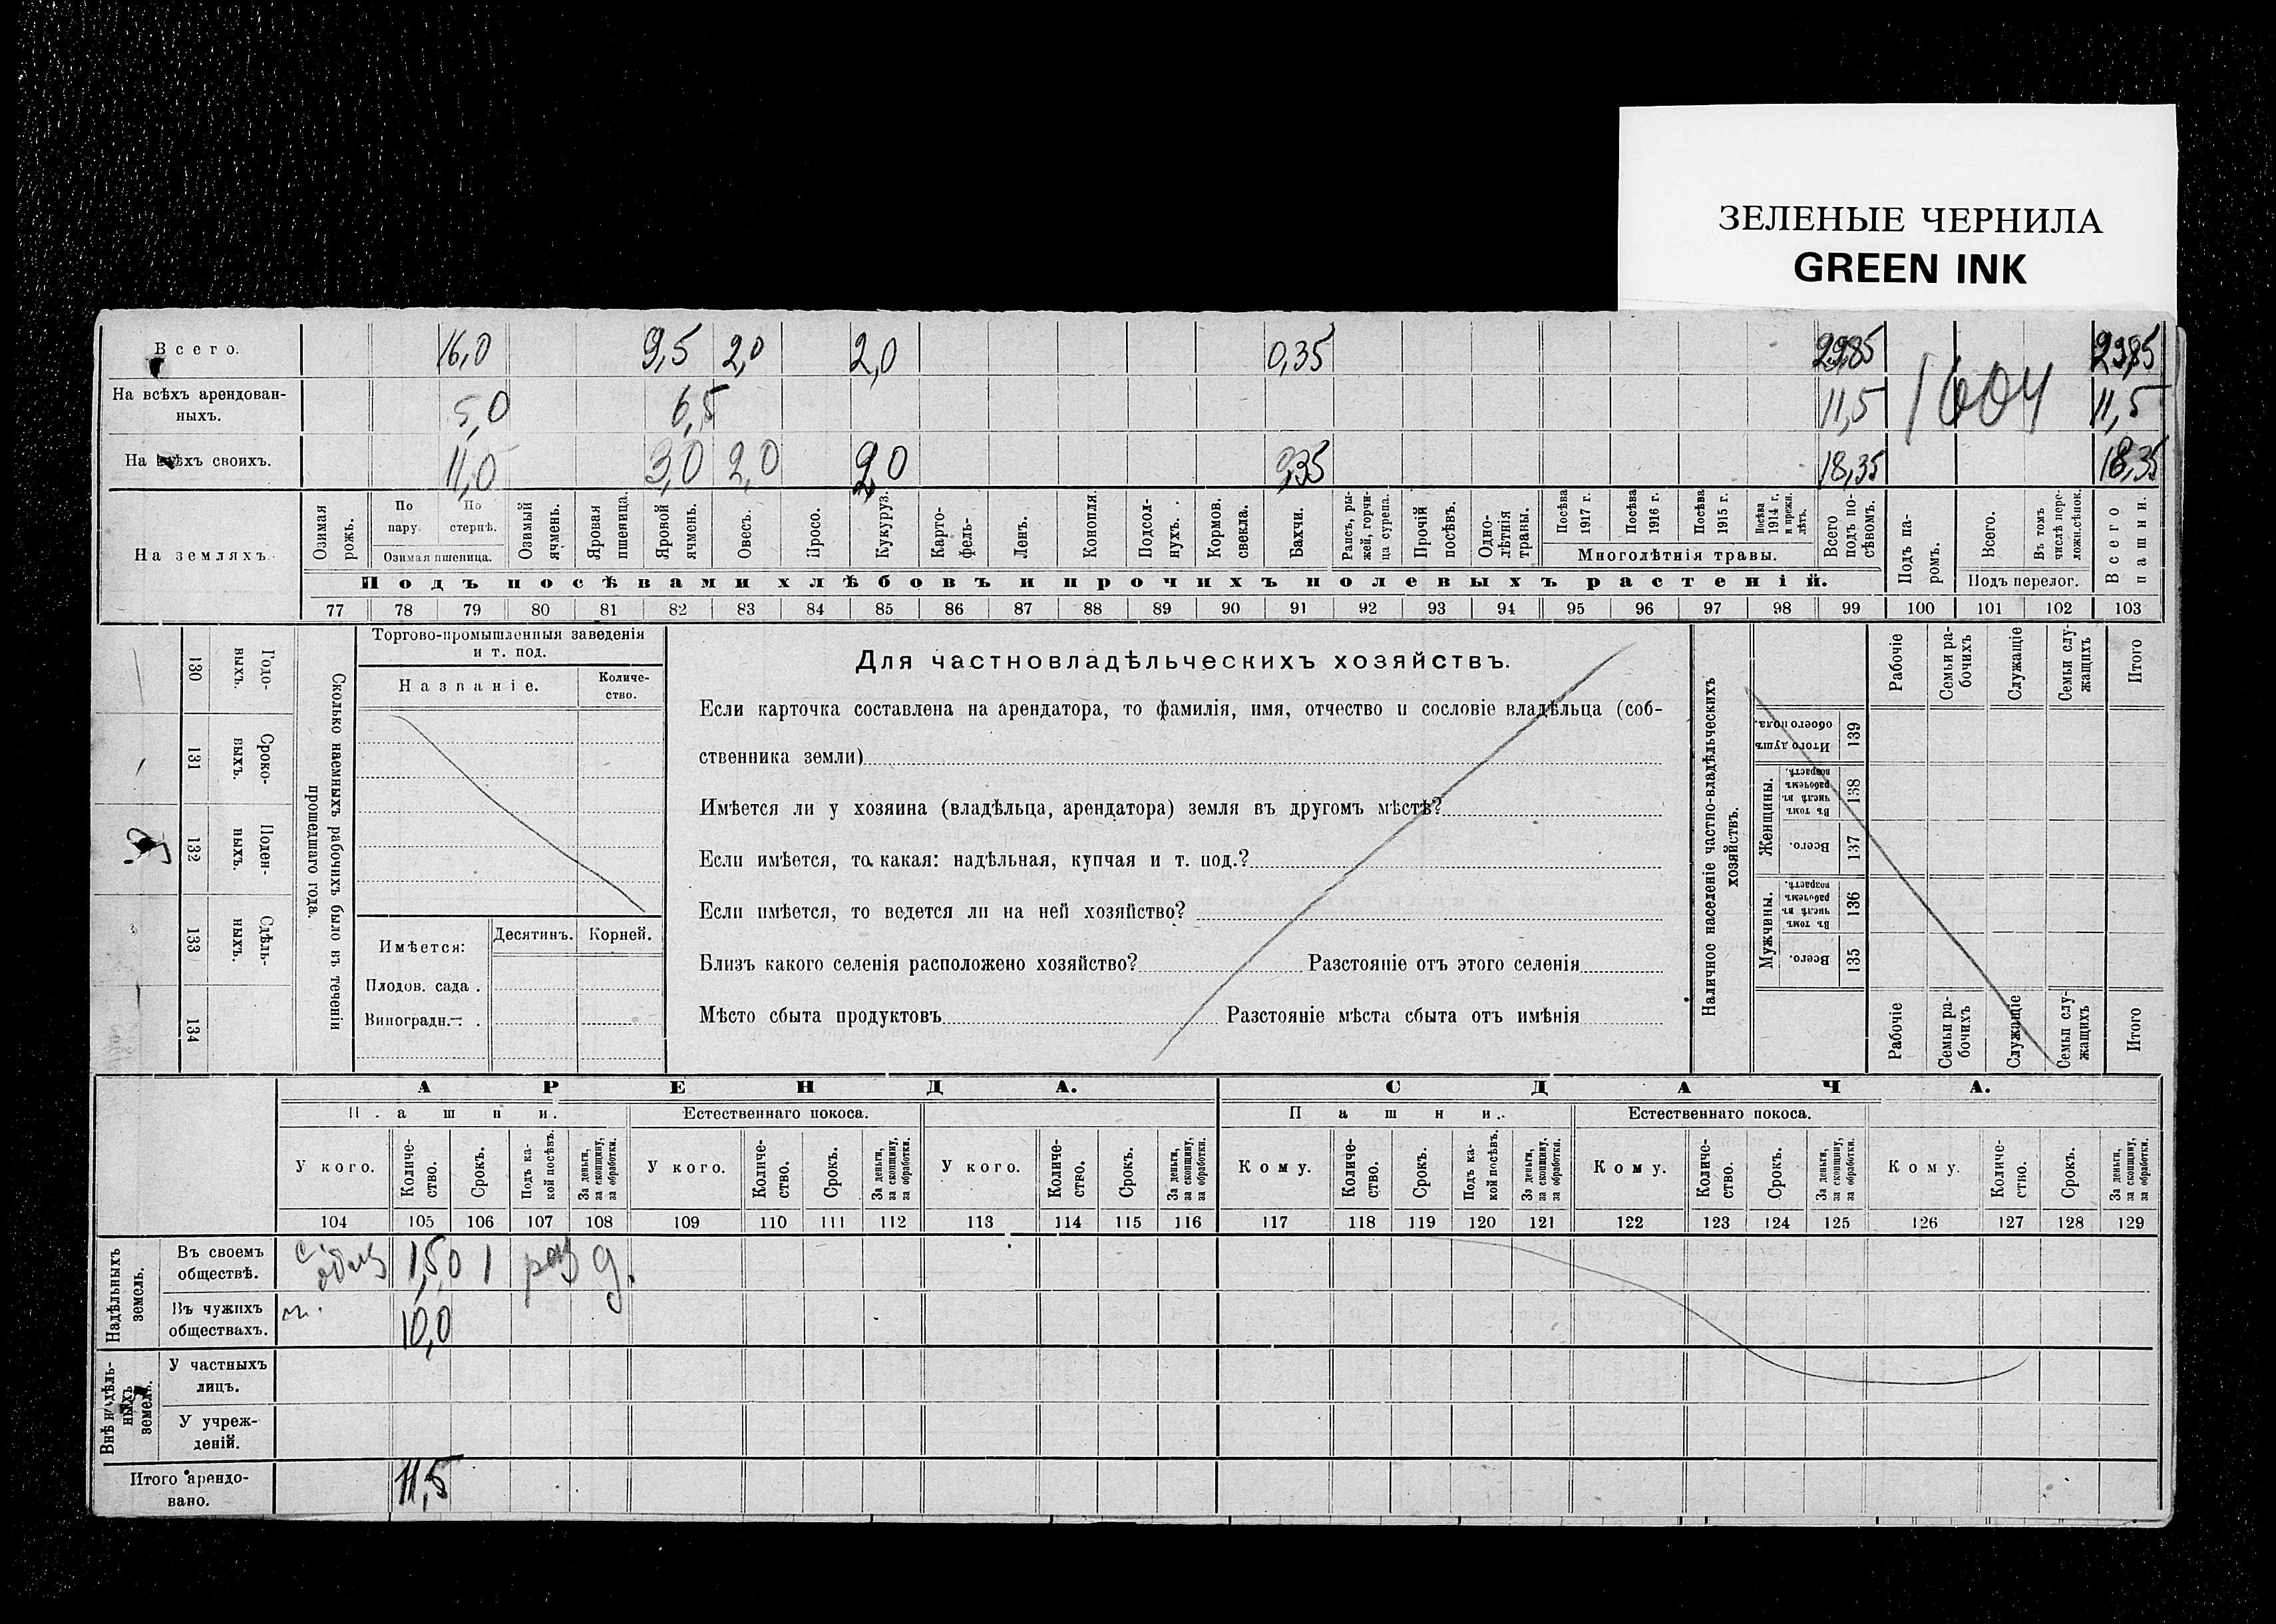 ЗЕЛЕНЫЕ ЧЕРНИЛА
GREEN INK
Всего. 16,0 9,5 2,0 2,0 0,35 29,85 29,85
На всѣхъ арендован-
ныхъ. 5,0 6,5 11,5 1604 11,5
На всѣхъ своихъ. 11,0 3,0 2,0 2,0 0,35 18,35 18,35
На земляхъ.
Озимая рожь.
По пару.
По стернѣ.
Озимая пшеница.
Озимый ячмень.
Яровая пшеница.
Яровой ячмень.
Овесъ.
Просо.
Кукуруз.
Карто-
фель.
Ленъ.
Конопля.
Подсол-
нухъ.
Кормов. свекла.
Бахчи.
Рапсъ, ры-
жей, горчи-
ца сурепа.
Прочій посѣвъ.
Одно-
лѣтнія травы.
Посѣва 1917 г.
Посѣва 1916 г.
Посѣва 1915 г.
Посѣва 1914 г. и прежн. лѣтъ.
Многолѣтнія травы.
Всего подъ по-
сѣвомъ.
Подъ па-
ромъ.
Всего.
Въ томъ числѣ пере-
ложн. сѣнок.
Подъ перелог.
Всего пашни.
Подъ посѣвами хлѣбовъ и прочихъ полевыхъ растеній.
77 78 79 80 81 82 83 84 85 86 87 88 89 90 91 92 93 94 95 96 97 98 99 100 101 102 103
130 Годо-
выхъ.
131 Сроко-
выхъ.
132 Поден-
ныхъ.
133 Сдѣль-
ныхъ.
134
Сколько наемныхъ рабочихъ было въ теченіи
прошедшаго года.
Торгово-промышленныя заведенія
и т. под.
Названіе.
Количе-
ство.
Имѣется: Десятинъ. Корней.
Плодов. сада .
Виноградн. .
Для частновладѣльческихъ хозяйствъ.
Если карточка составлена на арендатора, то фамилія, имя, отчество и сословіе владѣльца (соб-
ственника земли)
Имѣется ли у хозяина (владѣльца, арендатора) земля въ другомъ мѣстѣ?
Если имѣется, то какая: надѣльная, купчая и т. под.?
Если имѣется, то ведется ли на ней хозяйство?
Близъ какого селенія расположено хозяйство? Разстояніе отъ этого селенія
Мѣсто сбыта продуктовъ Разстояніе мѣста сбыта отъ имѣнія
Наличное населеніе частно-владѣльческихъ
хозяйствъ.
Рабочіе
Семьи ра-
бочихъ
Служащіе
Семьи слу-
жащихъ
Итого
Итого душъ обоего пола. 139
Женщины.
Въ томъ числѣ въ рабочемъ возрастѣ. 138
Всего. 137
Мужчины.
Въ томъ числѣ въ рабочемъ возрастѣ. 136
Всего. 135
Рабочіе
Семьи ра-
бочихъ
Служащіе
Семьи слу-
жащихъ
Итого
АРЕНДА. СДАЧА.
Пашни. Естественнаго покоса. Пашни. Естественнаго покоса.
У кого.
Количе-
ство.
Срокъ.
Подъ ка-
кой посѣвъ.
За деньги, за скопщину, за обработки.
У кого.
Количе-
ство.
Срокъ.
За деньги, за скопщину, за обработки.
У кого.
Количе-
ство.
Срокъ.
За деньги, за скопщину, за обработки.
Кому.
Количе-
ство.
Срокъ.
Подъ ка-
кой посѣвъ.
За деньги, за скопщину, за обработки.
Кому.
Количе-
ство.
Срокъ.
За деньги, за скопщину, за обработки.
Кому.
Количе-
ство.
Срокъ.
За деньги, за скопщину, за обработки.
104 105 106 107 108 109 110 111 112 113 114 115 116 117 118 119 120 121 122 123 124 125 126 127 128 129
Надѣльныхъ
земель.
Въ своемъ
обществѣ. 1,50 1 раз д.
Въ чужихъ
обществахъ. 10,0
Внѣ надѣль-
ныхъ
земель.
У частныхъ
лицъ.
У учреж-
деній.
Итого арендо-
вано. 11,5